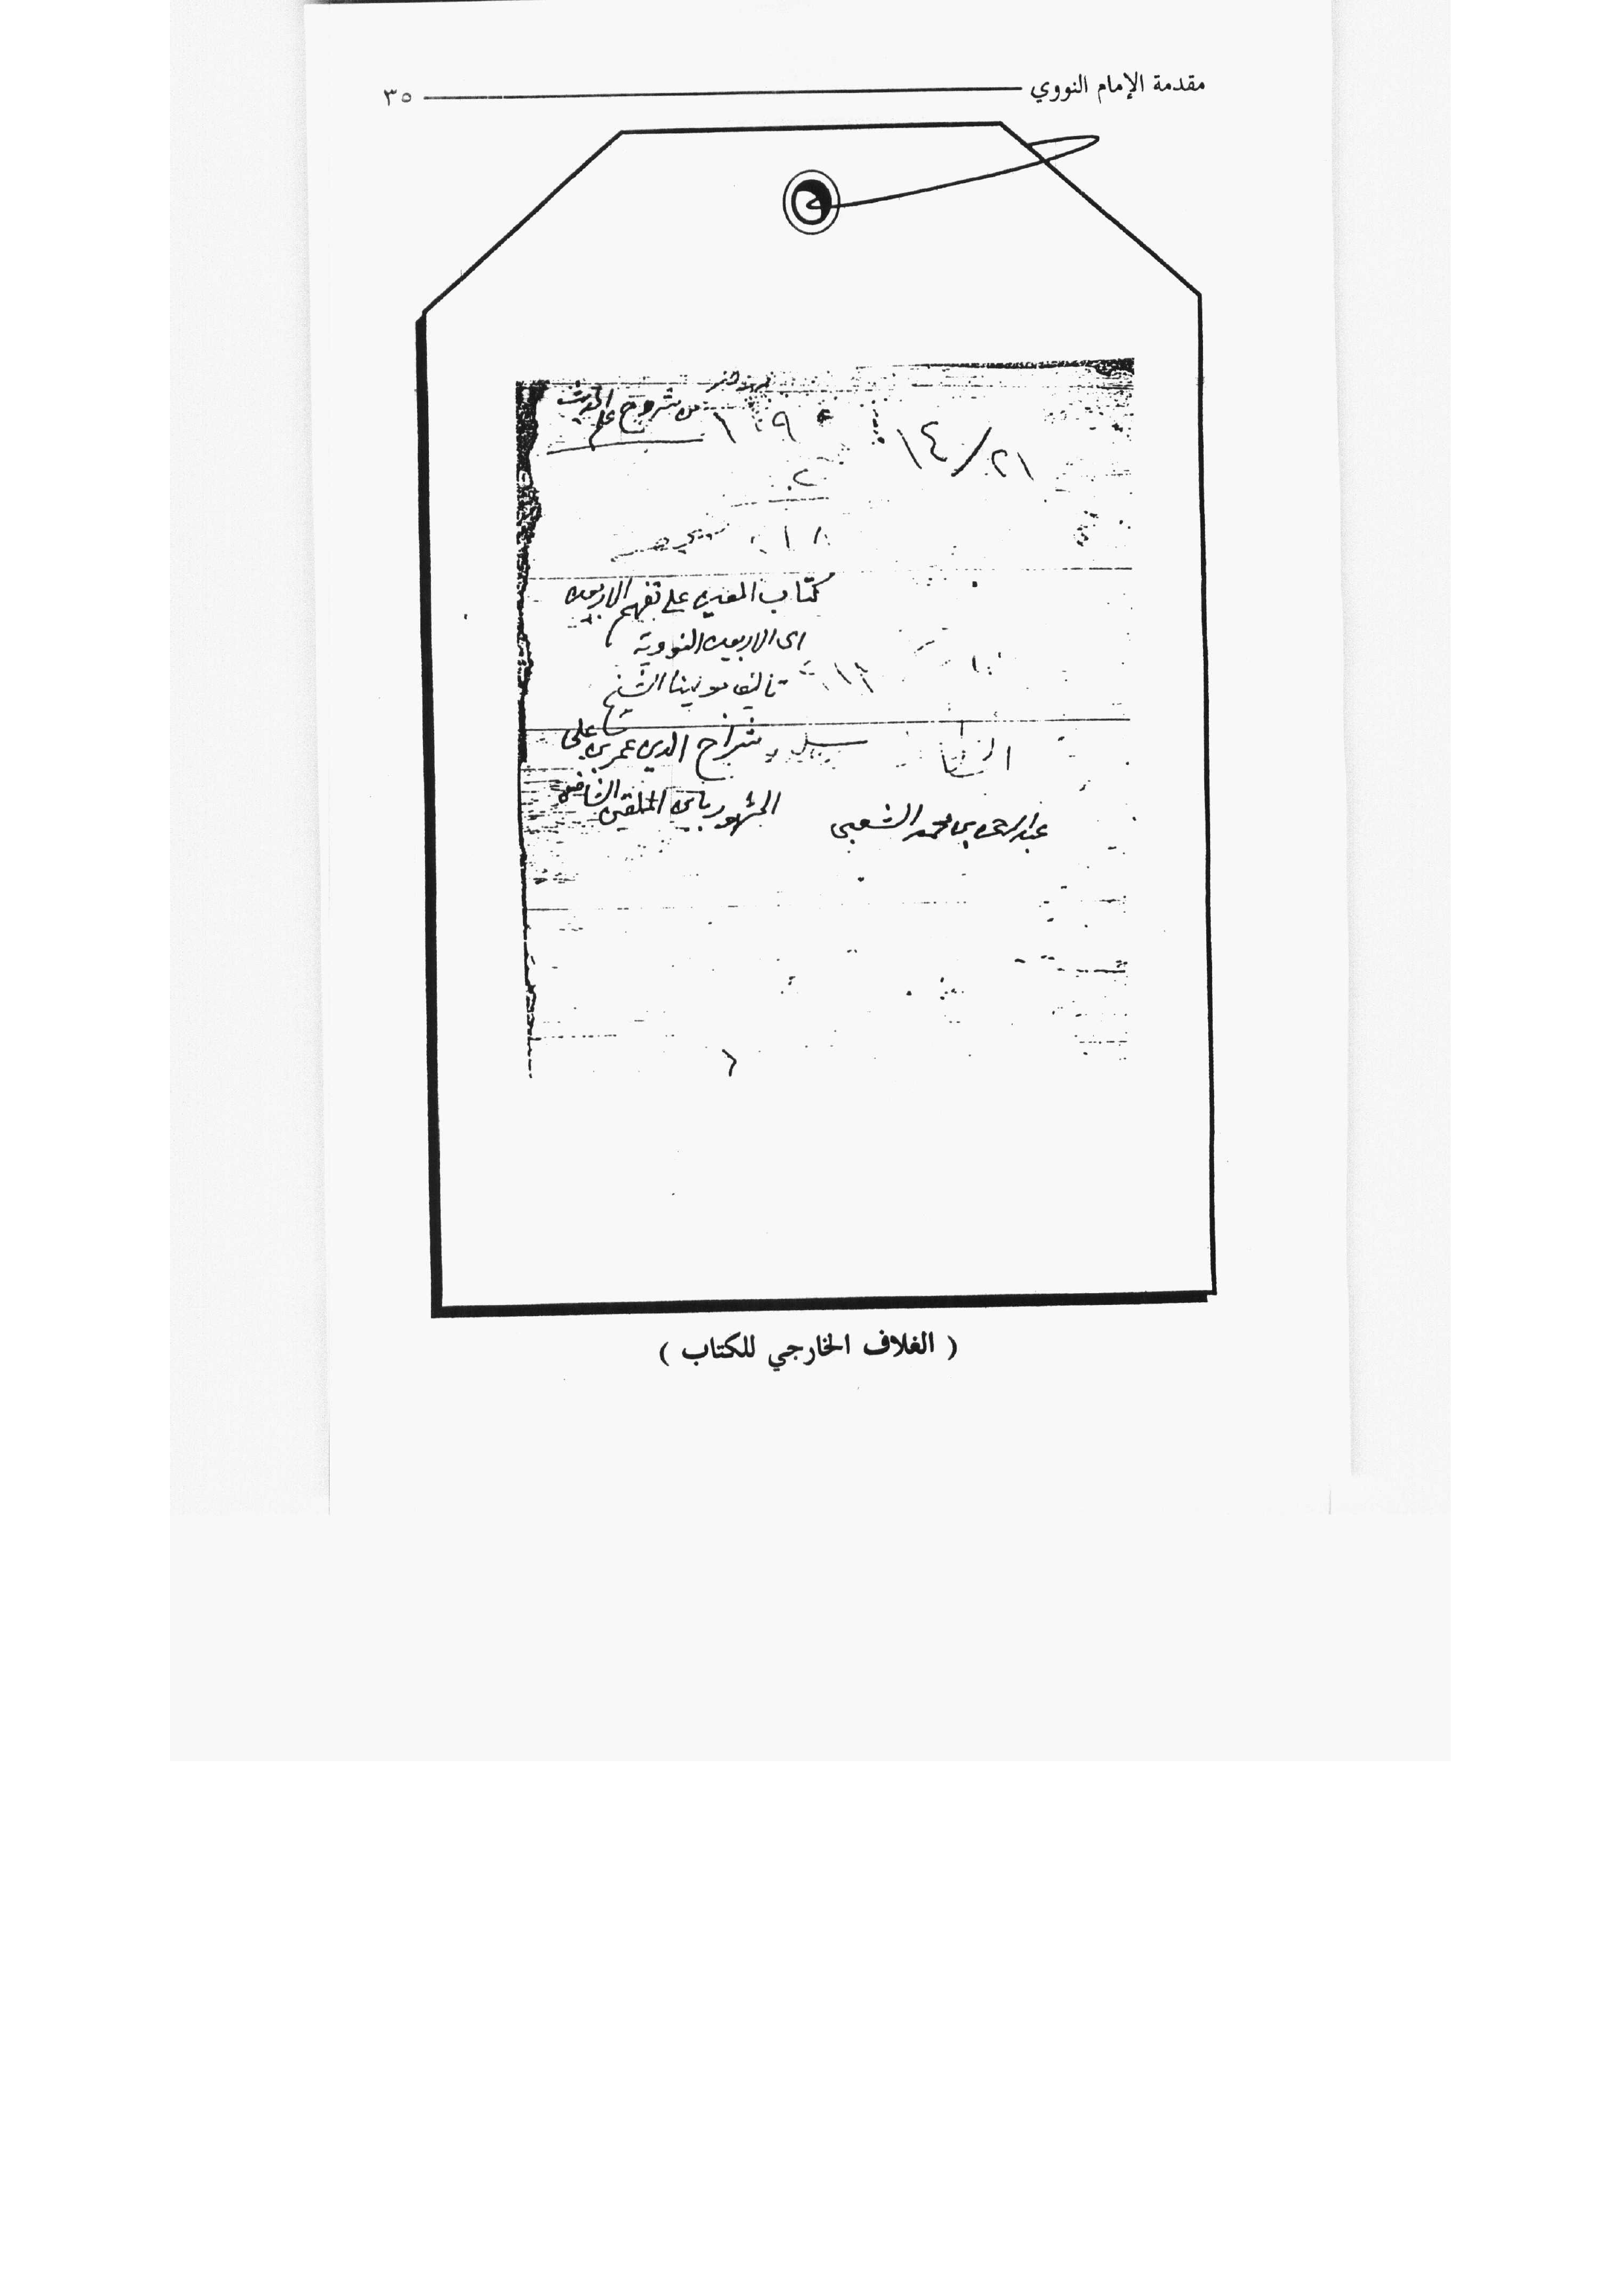 مقدمة الإمام النووي ٣٥
من شروح علم الحديث
١٤/٢١
كتاب المعين على تفهم الاربعين
اى الاربعين النووية
تأليف مولينا الشيخ
سراج الدين عمر بن على
المشهور بابن الملقن الشافعى
عبد الرحمن بن محمد الشعبى
( الغلاف الخارجي للكتاب )